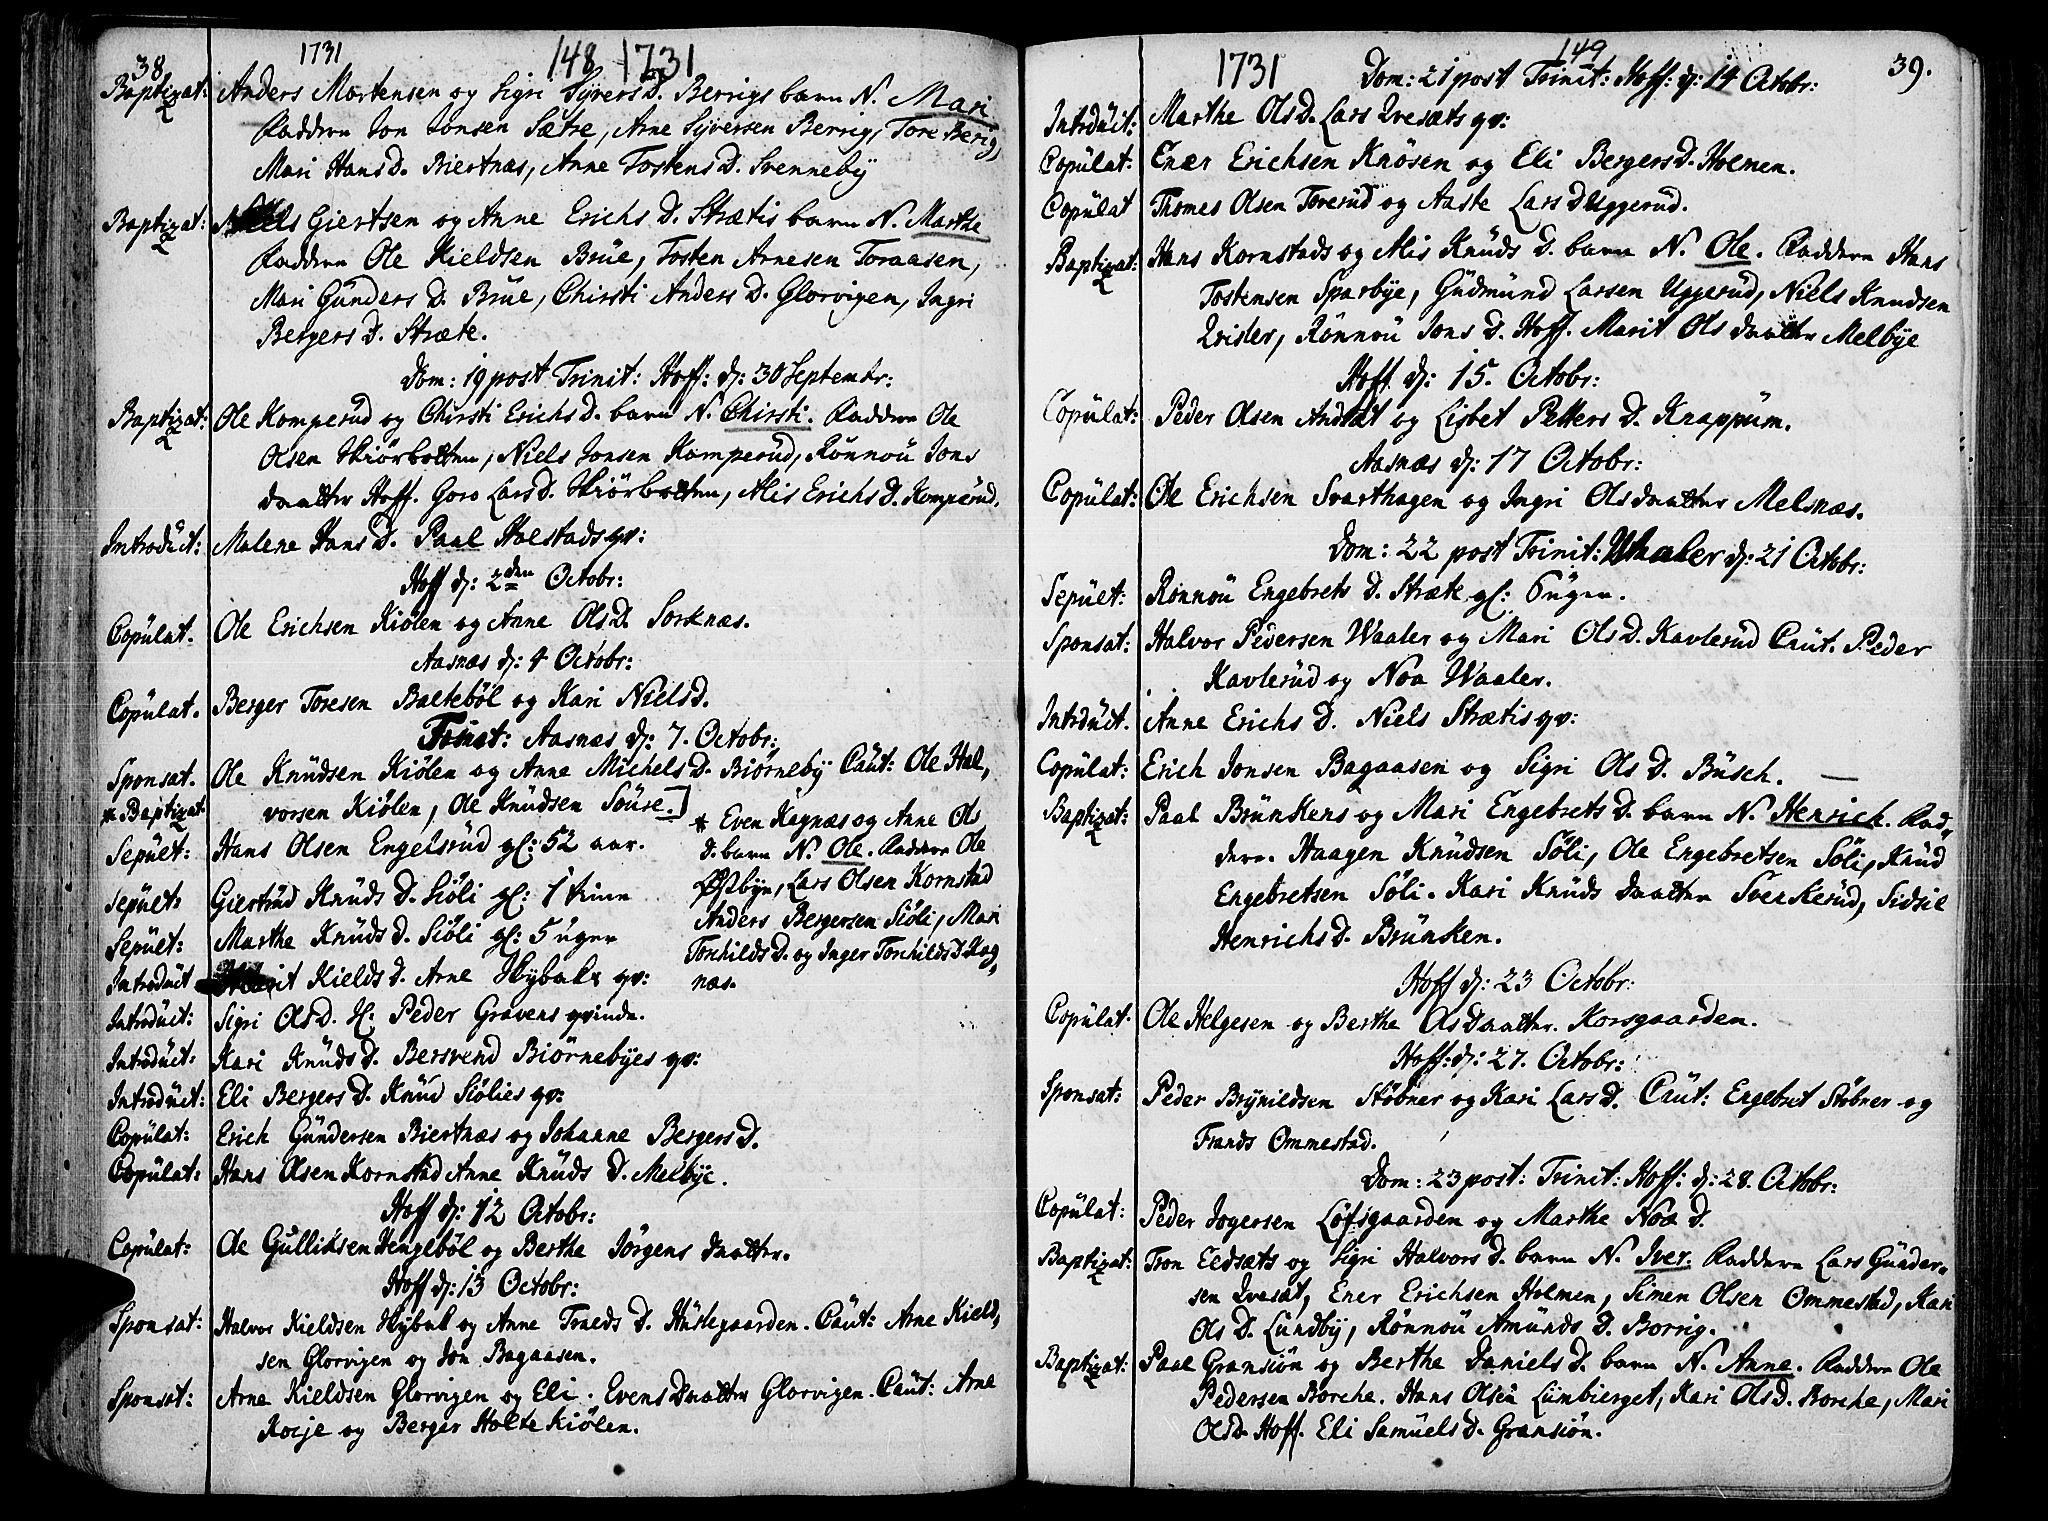 38 1731 148 1731
Baptizat: Anders Mortensen og Sigri SyversD. Berrigs barn N. Mari
Faddere Jon Jonsen Sætre, Arne Syversen Berrig, Tore Berig,
Mari HansD. Biertnæs, Anne TostensD. Svenneby
Baptizat: Niels Giertsen og Anne Erichs D. Strætis barn N. Marthe
Faddere Ole Kieldsen Brüe, Tosten Arnesen Toraasen,
Mari Günders D. Brüe, Chirsti Anders D. Glorvigen, Ingri
Bergers D. Stræte.
Dom: 19 post Trinit: Hoff: d: 30 Septembr:
Baptizat: Ole Komperud og Chirsti ErichsD. barn N. Chirsti. Faddere Ole
Olsen Skiörbolten, Niels Jonsen Komperüd, Rönnou Jons
daatter Hoff. Goro LarsD. Skiörbolten, Alis ErichsD. Komperud.
Introduct: Malene HansD. Paal Holstads qv:
Hoff d: 2den Octobr:
Copulat. Ole Erichsen Kiölen og Anne OlsD. Sorknæs.
Aasnæs d: 4 Octobr:
Copulat. Berger Toresen Balteböl og Kari Nielsd.
Aasnæs d: 7. Octobr:
Sponsat. Ole Knüdsen Kiölen og Anne Michels D. Biörneby Caut: Ole Hal,
vorsen Kiölen, Ole Knüdsen Soüse.]
* Baptizat * Even Kagnæs og Anne Ols
D. barn N. Ole. Faddere Ole
Østbye, Lars Olsen Kornstad
Anders Bergersen Siöli, Mari
TorchildsD. og Inger TorchildsD. Kag,
næs.
Sepult: Hans Olsen Engelsrüd gl: 52 aar.
Sepult: Giertrüd Knüds D. Siöli gl: 1 time
Sepult: Marthe Knüds D. Siöli gl: 5 uger
Introduct Marit Kields D. Arne Skybaks qv:
Introduct: Sigri OlsD. H. Peder Gravens qvinde.
Introduct: Kari KnüdsD. Bersvend Biörnebyes qv:
Introduct: Eli Bergers D. Knüd Siölies qv:
Copulat: Erich Gündersen Biertnæs og Johanne Bergers D.
Copulat: Hans Olsen Kornstad Anne Knüds D. Melbye.
Hoff d: 12 Octobr:
Copulat: Ole Gulliksen Hengeböl og Berthe Jörgens daatter.
Hoff d: 13 Octobr:
Sponsat: Halvor Kieldsen Skybak og Anne D. Hüslegaarden. Caut: Arne Kield,
sen Glorvigen og Jon Bagaasen.
Sponsat: Arne Kieldsen Glorvigen og Eli. Evens Daatter Glorvigen. Caut: Arne
og Berger Holte Kiölen.
1731 149 39.
Dom: 21 post Trinit: Hoff: d: 14 Octobr:
Introduct: Marthe OlsD. Lars Qvesæts qv:
Copulat: Enær Erichsen Knösen og Eli BergersD. Holmen.
Copulat Thomes Olsen Torerud og Aaste Lars D Uggerud.
Baptizat: Hans Kornstads og Alis Knüds D. barn N. Ole. Faddere Hans
Tostensen Sparbye, Gudmünd Larsen Uggerud, Niels Knudsen
Qvisler, Rönnou Jons D. Hoff. Marit Ols daatter Melbye
Hoff d: 15. Octobr:
Copulat: Peder Olsen Andsæt og Lisbet Petters D. Knappum.
Aasnæs d: 17 Octobr:
Copulat: Ole Erichsen Svarthagen og Ingri Olsdaatter Melsnæs.
Dom: 22 post Trinit: Waaler d: 21 Octobr:
Sepult: Ronnou Engebrets D. Stræte gl: 6 uger.
Sponsat: Halvor Pedersen Waaler og Mari Ols D. Kavlerud Caut. Peder
Kavlerud og Noa Waaler.
Introduct. Anne Erichs D. Niels Strætis qv:
Copulat: Erich Jonsen Bagaasen og Sigri Ols D. Büsch.
Baptizat: Paal Brünkens og Mari Engebrets D. barn N. Henrich. Fad,
dere. Haagen Knüdsen Söli, Ole Engebretsen Söli, Knüd
Engebretsen Söli. Kari Knüds daatter Sverkerud, Sidsil
Henrichs D. Brünken.
Hoff d: 23 Octobr:
Copulat. Ole Helgesen og Berthe Olsdaatter. Korsgaarden.
Hoff: d: 27. Octobr:
Sponsat: Peder Brynildsen Stöbner og Kari Lars D. Caut: Engebret Stöbner og
Frands Ommestad.
Dom: 23 post: Trinit: Hoff: d: 28. Octobr:
Copulat: Peder Jogersen Löfsgaarden og Marthe Noa D.
Baptizat: Tron Eidsæts og Sigri Halvors D. barn N. Iver. Faddere Lars Günder,
sen Qvesæt, Ener Erichsen Holmen, Simen Olsen Ommestad, Kari
Ols D. Lundby, Rönnou Amünds D. Borrig.
Baptizat: Paal Gransiön og Berthe Daniels D. barn N. Anne. Faddere Ole
Pedersen Borche. Hans Olsen Lumbierget, Kari OlsD. Borche, Mari
OlsD. Hoff. Eli Samuels D. Gransiön.